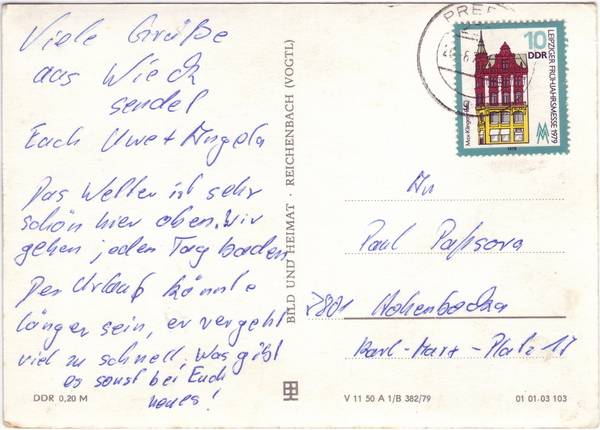 Viele Grüße
aus Wieck
sendet
Euch Uwe + Angela
Das Wetter ist sehr
schön hier oben. Wir
gehen jeden Tag baden
Der Urlaub könnte
länger sein, er vergeht
viel zu schnell. Was gibt
es sonst bei Euch
neues!
DDR 0,20 M
BILD UND HEIMAT · REICHENBACH (VOGTL)
PRER
10
DDR
LEIPZIGER FRÜHJAHRSMESSE 1979
1979
An
Paul
7801 Hohenbocka
Karl-Marx-Platz 17
V 11 50 A 1/B 382/79
01 01 03 103